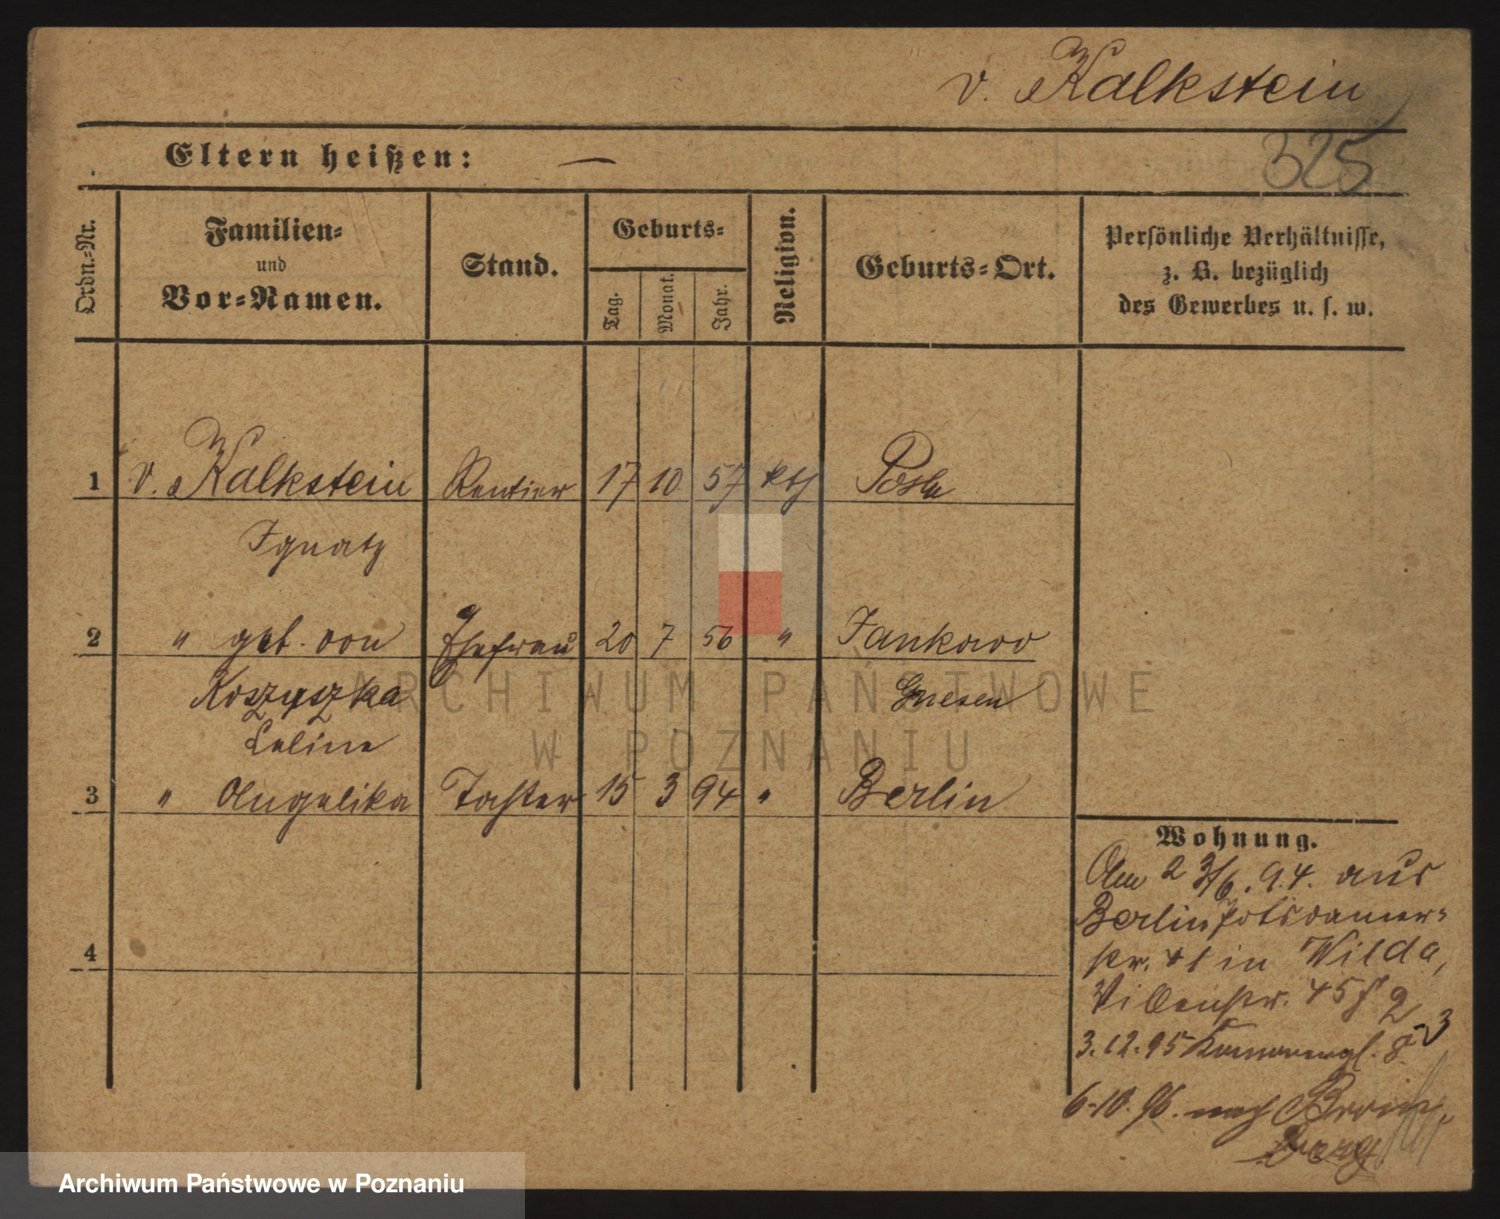 v. Kalkstein
325
Eltern heißen: —
Ordn.-Nr.
Familien-
und
Vor-Namen.
Stand.
Geburts-
Tag.
Monat.
Jahr.
Religion.
Geburts-Ort.
Persönliche Verhältnisse,
z. B. bezüglich
des Gewerbes u. s. w.
1 v. Kalkstein Rentier 17 10 57 kth
Ignatz
2 " geb. von Ehefrau 20 7 56 " Jankowo
Koszyszka Gnesen
Celine
3 " Angelika Tochter 15 3 94 " Berlin
4
Wohnung.
Am 23/6. 94. aus
Berlin Potsdamer-
str. in Wilda,
Villenstr. 45
3.12.95
6.10.96. nach
berg
ARCHIWUM PAŃSTWOWE
W POZNANIU
Archiwum Państwowe w Poznaniu